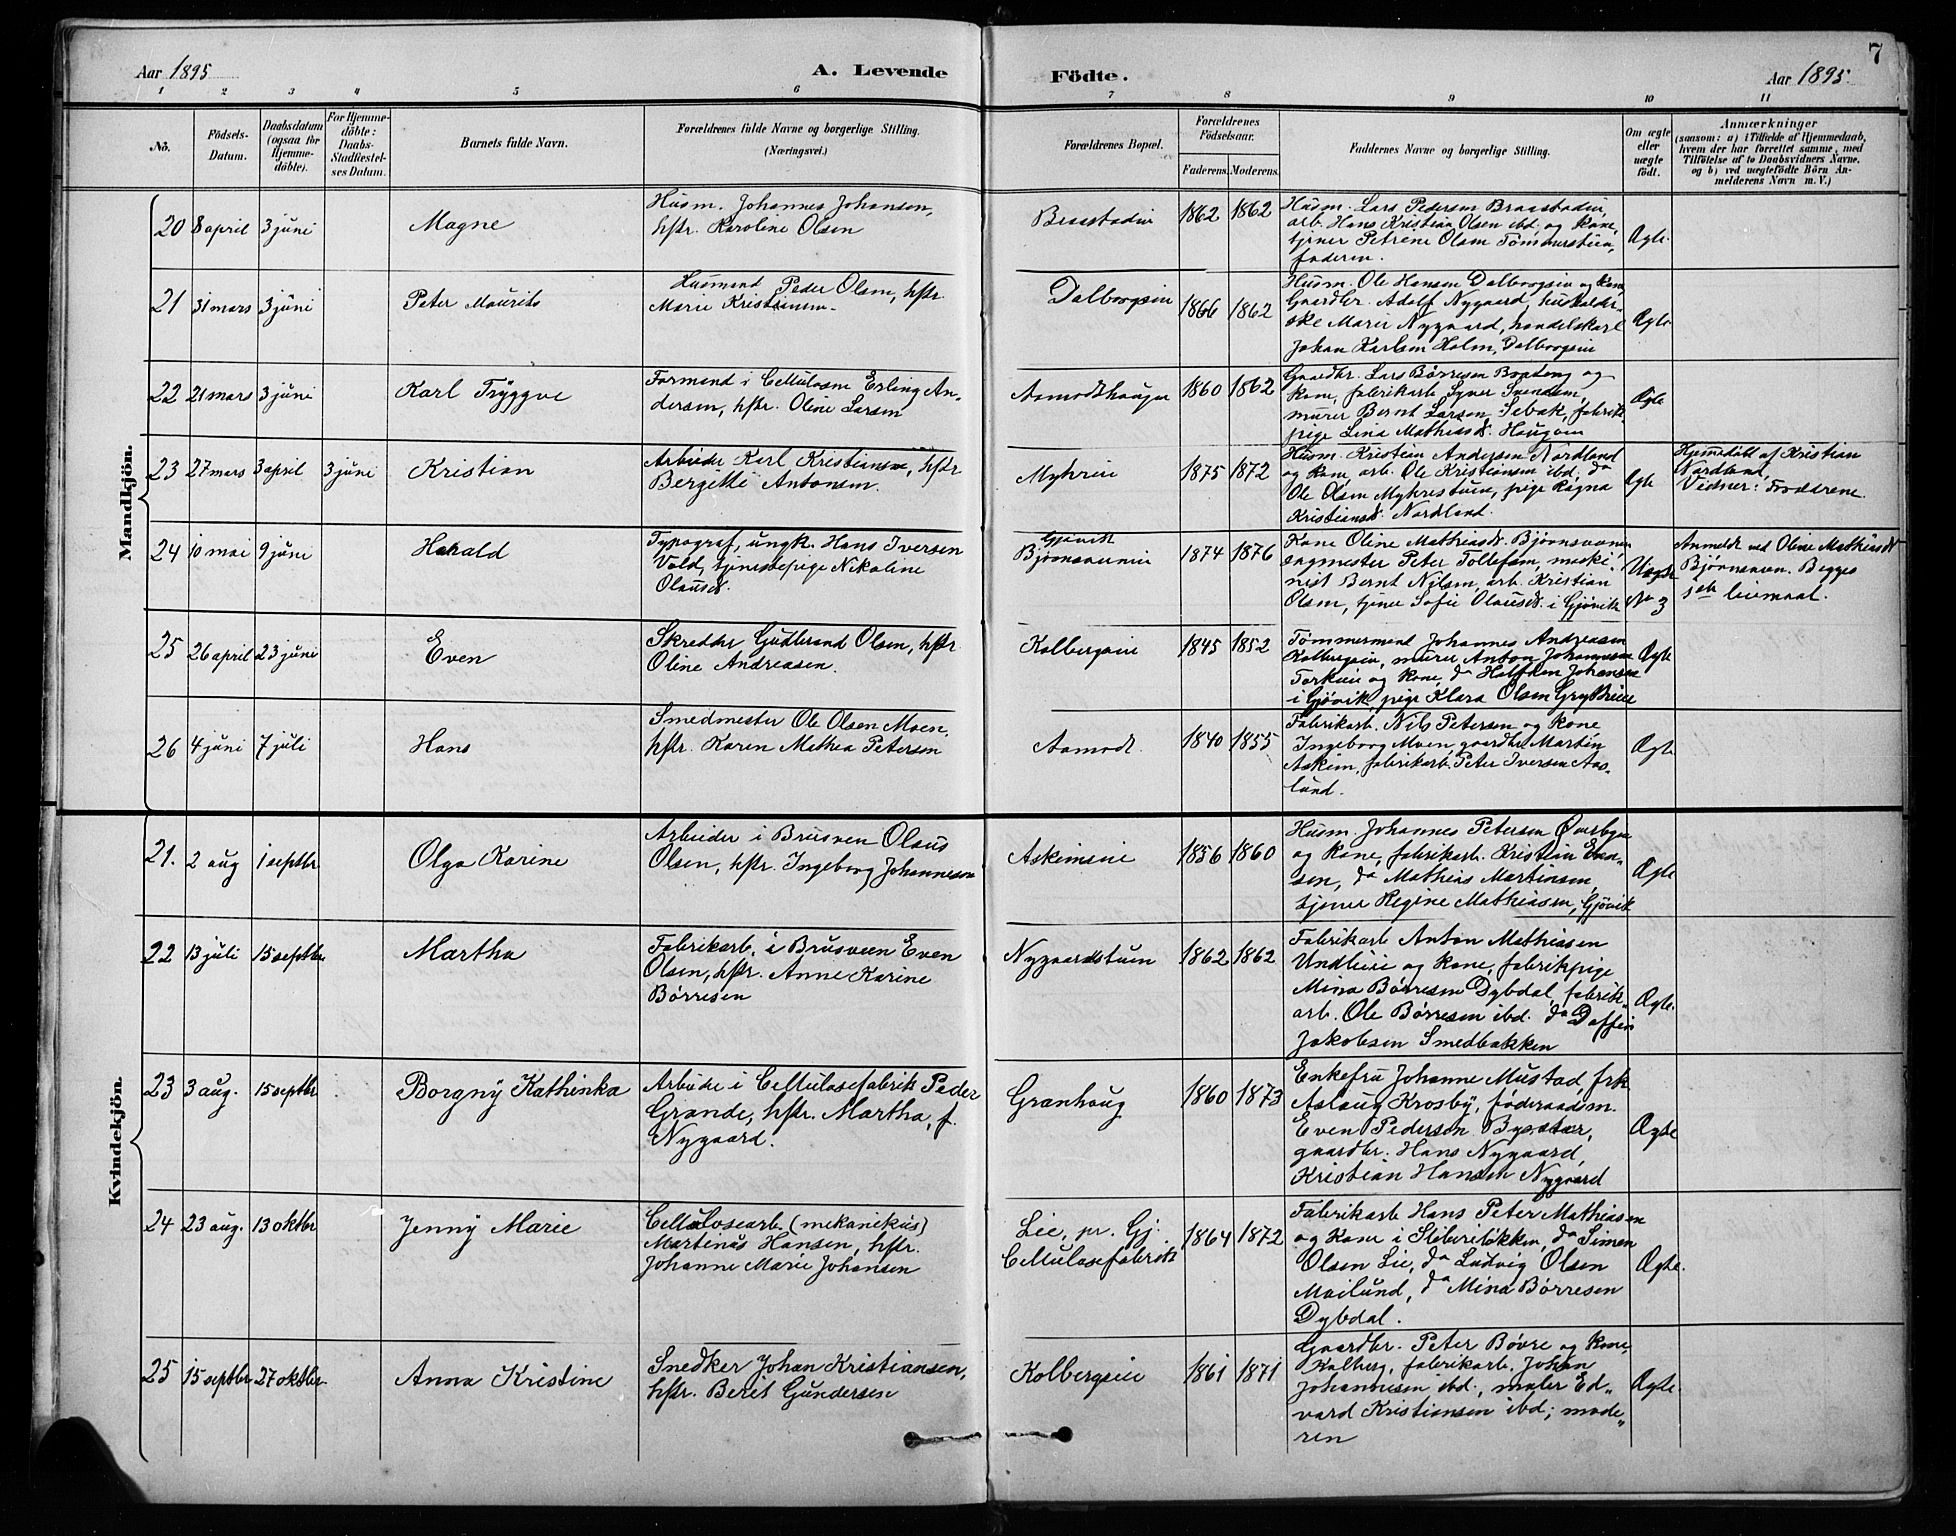 Aar 1895 A. Levende Födte. Aar 1895. 7
1 2 3 4 5 6 7 8 9 10 11
No.
Födsels-
Datum.
Daabsdatum
(ogsaa for
Hjemme-
döbte).
For Hjemme-
döbte:
Daabs-
Stadfæstel-
ses Datum.
Barnets fulde Navn.
Forældrenes fulde Navne og borgerlige Stilling.
(Næringsvei.)
Forældrenes Bopæl.
Forældrenes
Födselsaar.
Faderens. Moderens.
Faddernes Navne og borgerlige Stilling.
Om ægte
eller
uægte
födt.
Anmærkninger
(saasom: a) i Tilfælde af Hjemmedaab,
hvem der har forrettet samme, med
Tilföielse af to Daabsvidners Navne,
og b) ved uægtefödte Börn An-
melderens Navn m. V.)
Mandkjön.
20 8 april 3 juni
Magne
Husm. Johannes Johansen,
hstr. Karoline Olsen
Braastadeie
1862 1862
Husm. Lars Pedersen Braastadeie,
arb. Hans Kristian Olsen ibd. og kone,
tjener Petrene Olsen Tømmerstuen,
faderen.
Ægte.
21 31 mars 3 juni
Peter Maurits
Husmand Peder Olsen, hstr.
Marie Kristiansen.
Dalborgseie
1866 1862
Husm. Ole Hansen Dalborgseie og kone
Gaardbr. Adolf Nygaard, husholder-
ske Marie Nygaard, handelskarl
Johan Karlsen Holm, Dalborgseie
Ægte
22 21 mars 3 juni
Karl Tryggve
Formand i Cellulosen Erling An-
dersen, hstr. Oline Larsen
Aamodthaugen
1860 1862
Gaardbr. Lars Børresen Bratong og
kone, fabrikarb. Syver Svendsen,
murer Bernt Larsen Sebak, fabrik
pige Lina Mathiasd. Haugen
Ægte
23 27 mars 3 april 3 juni
Kristian
Arbeider Karl Kristiansen, hstr
Bergitte Antonsen.
Myhreie
1875 1872
Husm. Kristian Andersen Nordland
og kone, arb. Ole Kristiansen ibd. do
Ole Olsen Myhrestuen, pige Ragna
Kristiansd. Nordland.
Ægte
Hjemmedøbt af Kristian
Nordland.
Vidner: Fadderene.
24 10 mai 9 juni
Harald
Typograf, ungk. Hans Iversen
Vold, tjenestepige Nikoline
Olausd.
Gjøvik
Bjørnsveneie
1874 1876
Kone Oline Mathiasd. Bjørnsveen
mester Peter Tollefsen, maski-
nist Bernt Nilsen, arb. Kristian
Olsen, tjener Sofie Olausd. i Gjøvik
Uægte
No 3
Anmeldt ved Oline Mathiasd.
Bjørnsveen. Begges
1ste leiermaal.
25 26 april 23 juni
Even
Skredder Gudbrand Olsen, hstr
Oline Andreasen.
Kolbergseie
1845 1852
Tømmermand Johannes Andreasen
Kolbergseie, murer Anton Johannesen
og kone, do Halfdan Johansen
i Gjøvik, pige Klara Olsen
Ægte
26 4 juni 7 juli
Hans
Smedmester Ole Olsen Moen,
hstr. Karen Mathea Petersen
Aamodt.
1840 1855
Fabrikarb. Nils Petersen og kone
Ingeborg Moen, gaardbr. Martin
Askim, fabrikarb. Peter Iversen Aas-
lund.
Ægte
Kvindekjön.
21. 2 aug 1 septbr
Olga Karine
Arbeider i Brusveen Olaus
Olsen, hstr. Ingeborg Johannesen
Askimseie
1856 1860
Husm. Johannes Petersen Øverbyen
og kone, fabrikarb. Kristian Even-
sen, do Mathias Martinsen,
tjener Regine Mathiasen, Gjøvik
Ægte
22 13 juli 15 septbr
Martha
Fabrikarb. i Brusveen Even
Olsen, hstr. Anne Karine
Børresen
Nygaardstuen
1862 1862
Fabrikarb Anton Mathiasen
Undlieie og kone, fabrikpige
Mina Børresen Dybdal, fabrik-
arb. Ole Børresen ibd. do Daffin
Jakobsen Smedbakken
Ægte.
23 3 aug. 15 septbr
Borgny Kathinka
Arbeider i Cellulosefabrik Peder
Grande, hstr. Martha, f.
Nygaard.
Granhaug
1860 1873
Enkefru Johanne Mustad, frk
Aslaug Krosby, føderaadsm.
Even Pedersen Bysæter,
gaardbr. Hans Nygaard,
Kristian Hansen Nygaard
Ægte
24 23 aug. 13 oktbr
Jenny Marie
Cellulosearb. (mekanikus)
Martinus Hansen, hstr.
Johanne Marie Johansen
Lie, pr. Gj.
Cellulosefabrik
1864 1872
Fabrikarb Hans Peter Mathiasen
og kone i Sliberiløkken do Simen
Olsen Lie, do Ludvig Olsen
Moilund, do Mina Børresen
Dybdal.
Ægte.
25 15 septbr 27 oktbr.
Anna Kristine
Snedker Johan Kristiansen,
hstr. Berit Gundersen
Kolbergseie
1861 1871
Gaardbr. Peter Bøvre og kone,
Kolberg, fabrikarb. Johan
Johannesen ibd., maler Ed-
vard Kristiansen ibd; mode-
ren
Ægte.